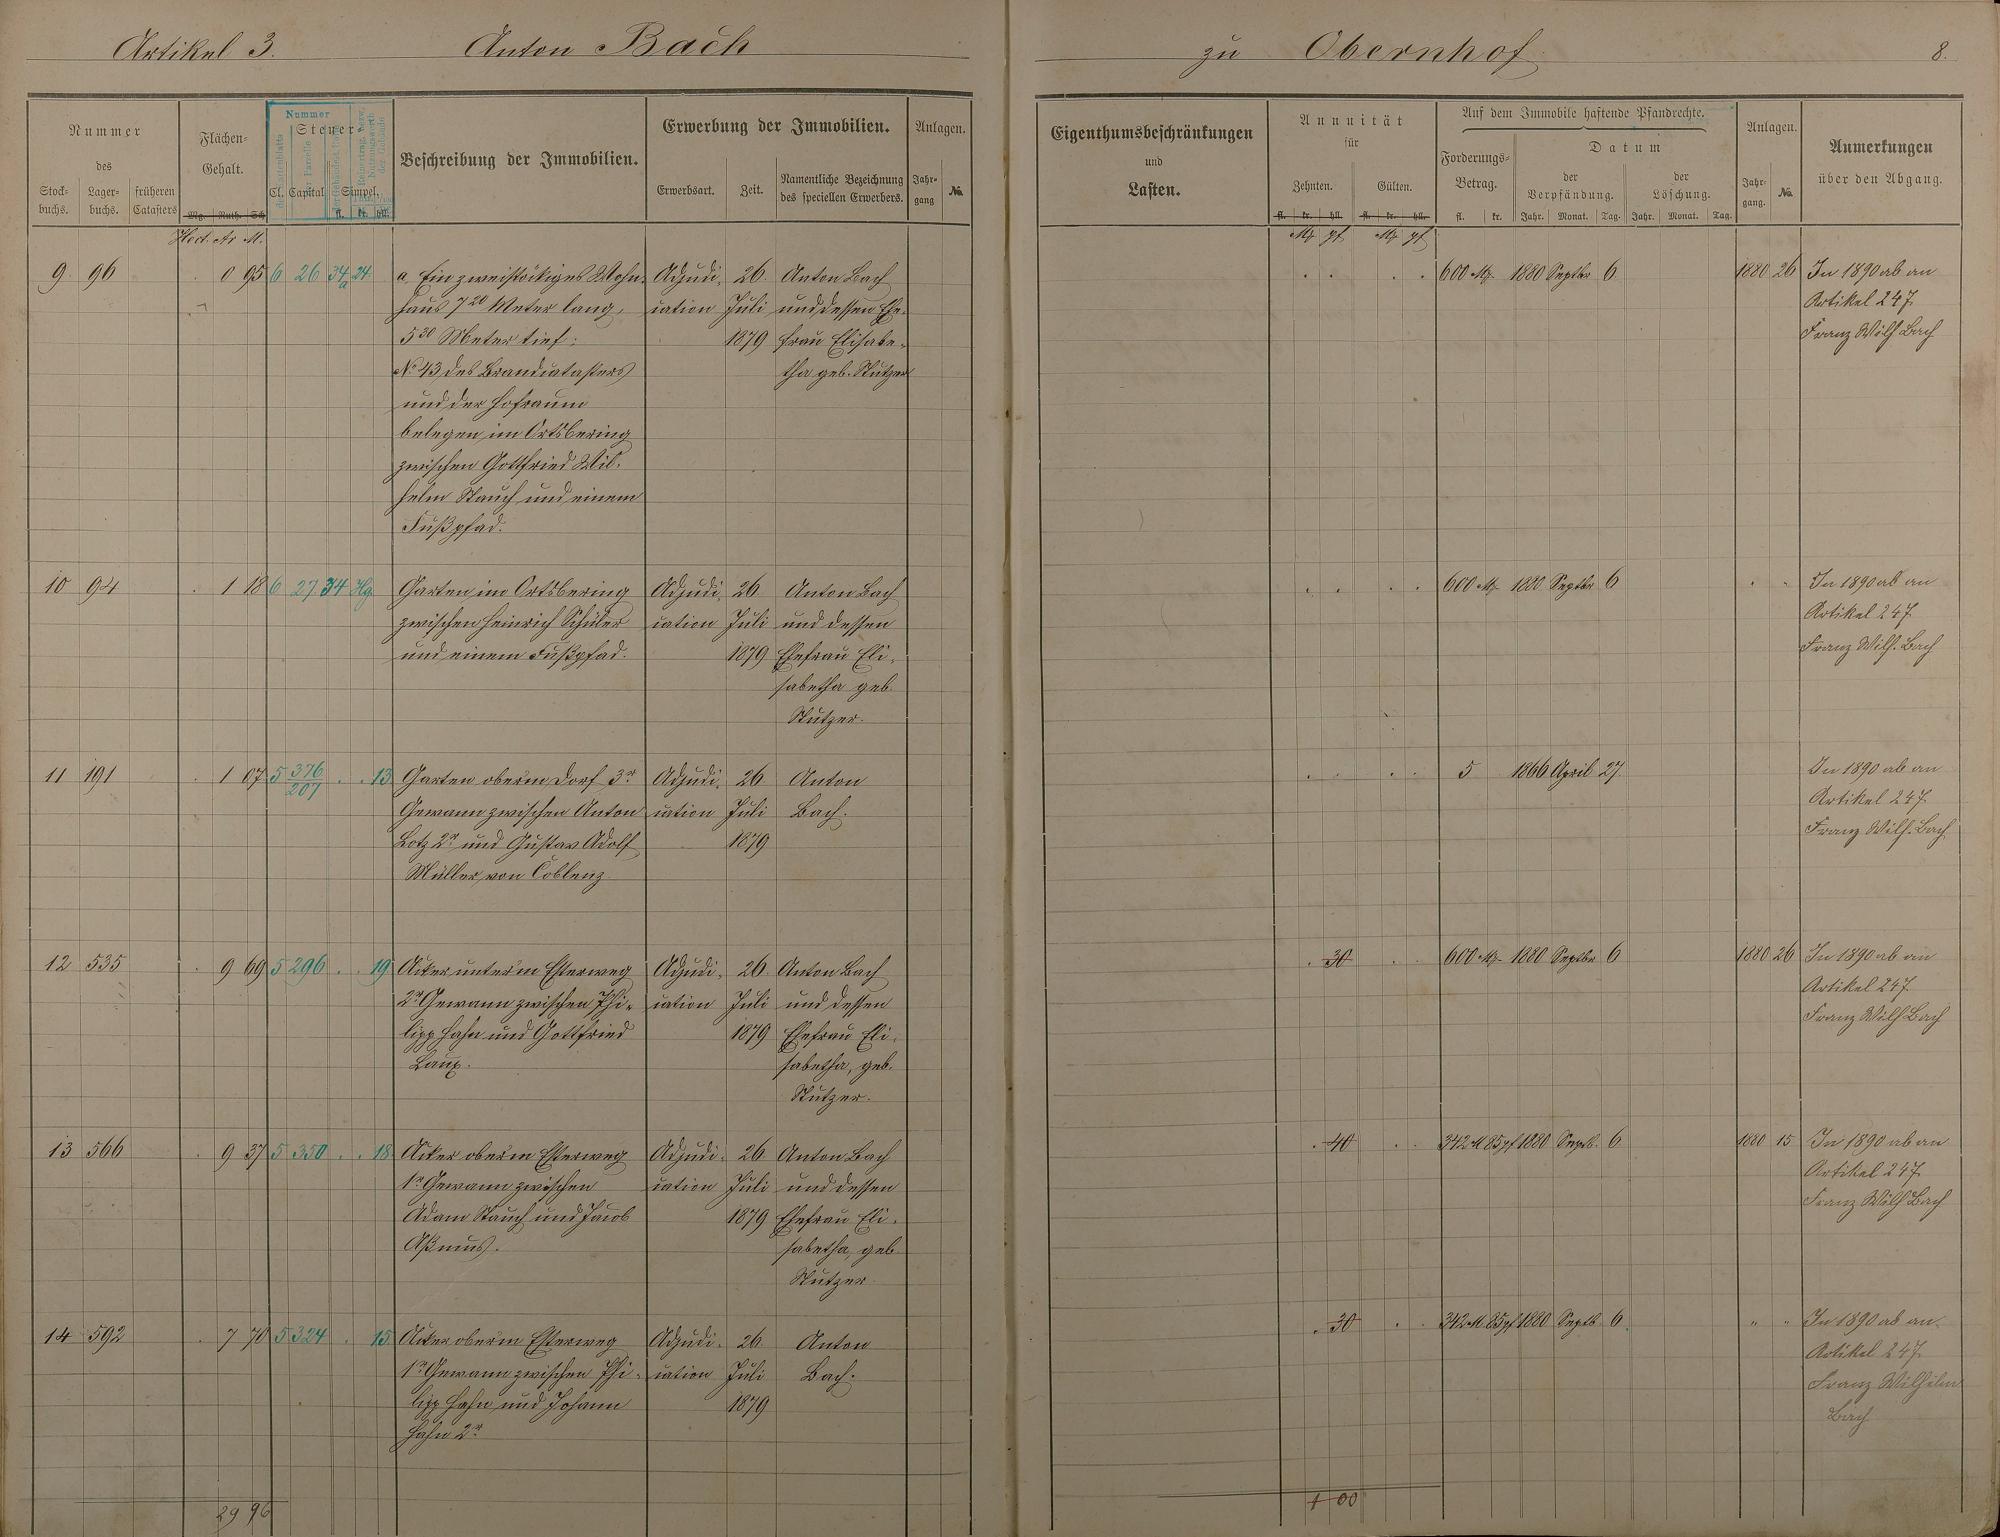 Artikel 3. Anton Bach zu Obernhof 8.
Nummer
des
Stock-buchs. Lager-buchs. früheren Catasters
Flächen-Gehalt.
Mg. Ruth. Sch
Nummer
Steuer
Cl. Capital Simpel.
fl. kr. hll.
Beschreibung der Immobilien.
Erwerbung der Immobilien.
Erwerbsart. Zeit. Namentliche Bezeichnung des speciellen Erwerbers.
Anlagen.
Jahr-gang No.
Eigenthumsbeschränkungen
und
Lasten.
Annuität
für
Zehnten. Gülten.
fl. kr. hll. fl. kr. hll.
Auf dem Immobile haftende Pfandrechte.
Forderungs-Betrag.
fl. kr.
Datum
der Verpfändung. der Löschung.
Jahr. Monat. Tag. Jahr. Monat. Tag.
Anlagen.
Jahr-gang. No.
Anmerkungen
über den Abgang.
Hect. Ar M.
M pf M pf
9 96 0 95 6 26 34 a 24
a, Ein zweistöckiges Wohn-
haus 7 20 Meter lang,
5 30 Meter tief;
No 43 des Brandcatasters
und der Hofraum
belegen im Ortsbering
zwischen Gottfried Wil-
helm Stauch und einem
Fußpfad.
Adjudi-
cation
26
Juli
1879
Anton Bach
und dessen Ehe-
frau Elisabe-
tha geb. Stutzer
600 M 1880 Septbr 6 1880 26
In 1890 ab an
Artikel 247
Franz Wilh Bach
10 94 1 18 6 27 34 Hg.
Garten im Ortsbering
zwischen Heinrich Schüler
und einem Fußpfad.
Adjudi-
cation
26
Juli
1879
Anton Bach
und dessen
Ehefrau Eli-
sabetha geb.
Stutzer.
600 M 1880 Septbr 6 " "
In 1890 ab an
Artikel 247
Franz Wilh. Bach
11 191 1 07 5 376/207 13
Garten oberm Dorf 3r
Gewann zwischen Anton
Lotz 2r und Gustav Adolf
Müller von Coblenz
Adjudi-
cation
26
Juli
1879
Anton
Bach.
5 1866 April 27
In 1890 ab an
Artikel 247
Franz Wilh. Bach
12 535 9 69 5 296 19
Acker unterm Esterweg
2r Gewann zwischen Phi-
lipp Hahn und Gottfried
Laux.
Adjudi-
cation
26
Juli
1879
Anton Bach
und dessen
Ehefrau Eli-
sabetha, geb.
Stutzer.
30 600 M 1880 Septbr 6 1880 26
In 1890 ab an
Artikel 247
Franz Wilh Bach
13 566 9 37 5 350 18
Acker oberm Esterweg
1r Gewann zwischen
Adam Stauch und Jacob
Aßmus.
Adjudi-
cation
26
Juli
1879
Anton Bach
und dessen
Ehefrau Eli-
sabetha, geb
Stutzer
40 342 M 85 pf 1880 Septb. 6 1880 15
In 1890 ab an
Artikel 247
Franz Wilh Bach
14 592 7 70 5 324 15
Acker oberm Esterweg
1r Gewann zwischen Phi-
lipp Hahn und Johann
Hahn 2r
Adjudi-
cation
26
Juli
1879
Anton
Bach.
30 342 M 85 pf 1880 Septb. 6 " "
In 1890 ab an.
Artikel 247
Franz Wilhelm
Bach
29 96 1 00